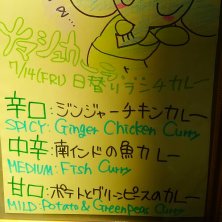 ソマシェカ
7/14(FRI) 日替りランチカレー
辛口:ジンジャーチキンカレー
SPICY: Ginger Chicken Curry
中辛:南インドの魚カレー
MEDIUM: Fish Curry
甘口:ポテトとグリーンピースのカレー
MILD: Potato & GreenPeas Curry